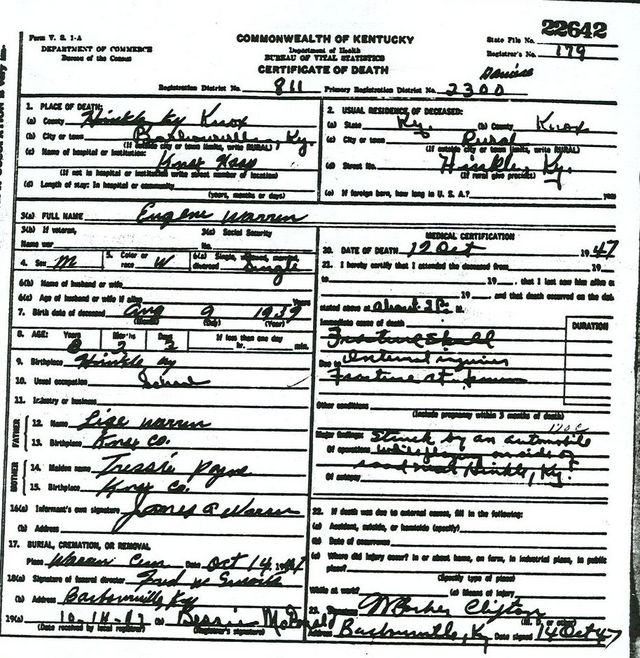 22642
Form V. S. 1-A
DEPARTMENT OF COMMERCE
Bureau of the Census
COMMONWEALTH OF KENTUCKY
Department of Health
BUREAU OF VITAL STATISTICS
CERTIFICATE OF DEATH
State File No.
Registrar's No. 179
Registration District No. 811 Primary Registration District No. 2300
1. PLACE OF DEATH:
(a) County Hinkle Ky Knox
(b) City or town Barbourville, Ky.
(If outside city or town limits, write RURAL)
(c) Name of hospital or institution:
Knox Hosp
(If not in hospital or institution write street number or location)
(d) Length of stay: In hospital or community
(years, months or days)
2. USUAL RESIDENCE OF DECEASED:
(a) State Ky (b) County Knox
(c) City or town Rural
(If outside city or town limits, write RURAL)
(d) Street No. Hinkle, Ky.
(If rural give precinct)
(e) If foreign born, how long in U. S. A.? years
3(a) FULL NAME Eugene Warren
3(b) If veteran, Name war 3(c) Social Security No.
4. Sex M 5. Color or race W 6(a) Single, widowed, married, divorced Single
6(b) Name of husband or wife
6(c) Age of husband or wife if alive Years
7. Birth date of deceased Aug 9 1939
(Month) (Day) (Year)
8. AGE: Years 8 Months 2 Days 3 If less than one day hr. min.
9. Birthplace Hinkle Ky
10. Usual occupation School
11. Industry or business
FATHER
12. Name Lige Warren
13. Birthplace Knox Co.
MOTHER
14. Maiden name Tressie Payne
15. Birthplace Knox Co.
16(a) Informant's own signature James A Warren
(b) Address
17. BURIAL, CREMATION, OR REMOVAL
Place Warren Cem Date Oct 14 1947
18(a) Signature of funeral director Fred W
(b) Address Barbourville, Ky
19(a) 10-14-47 (b) Bessie McDonald
(Date received by local registrar) (Registrar's signature)
MEDICAL CERTIFICATION
20. DATE OF DEATH 12 Oct 1947
21. I hereby certify that I attended the deceased from 19
to 19 , that I last saw him alive on
19 , and that death occurred on the date
stated above at About 2 P. M.
Immediate cause of death DURATION
Fracture Skull
Due to Internal injuries
Fracture
Other conditions
(Include pregnancy within 3 months of death)
170C
Major findings: Struck by an automobile
Of operations while playing on side of
Of autopsy road near Hinkle, Ky.
22. If death was due to external causes, fill in the following:
(a) Accident, suicide, or homicide (specify)
(b) Date of occurrence
(c) Where did injury occur? in or about home, on farm, in industrial place, in public
place?
(Specify type of place)
While at work? (e) Means of injury
23. Signature Clifton
(M. D. or other)
Address Barbourville, Ky Date signed 14 Oct 47